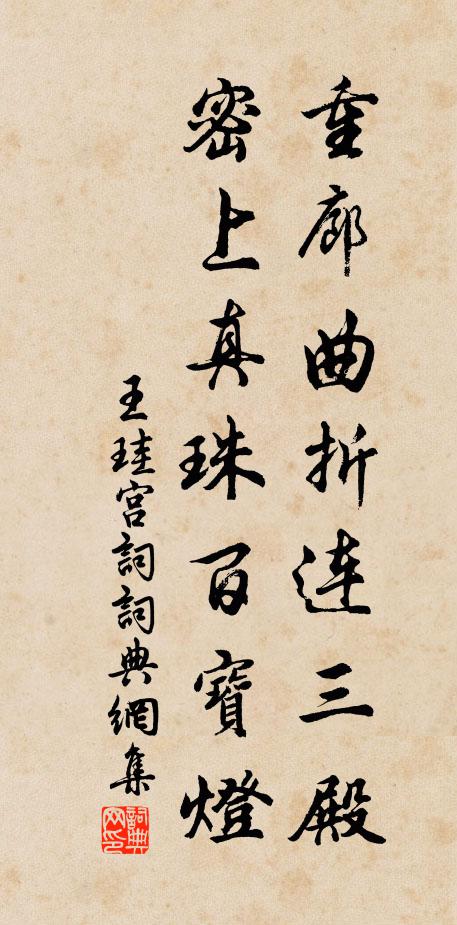 重廊曲折連三殿
密上真珠百寶燈
王珪宮詞詞典網集
詞典网印